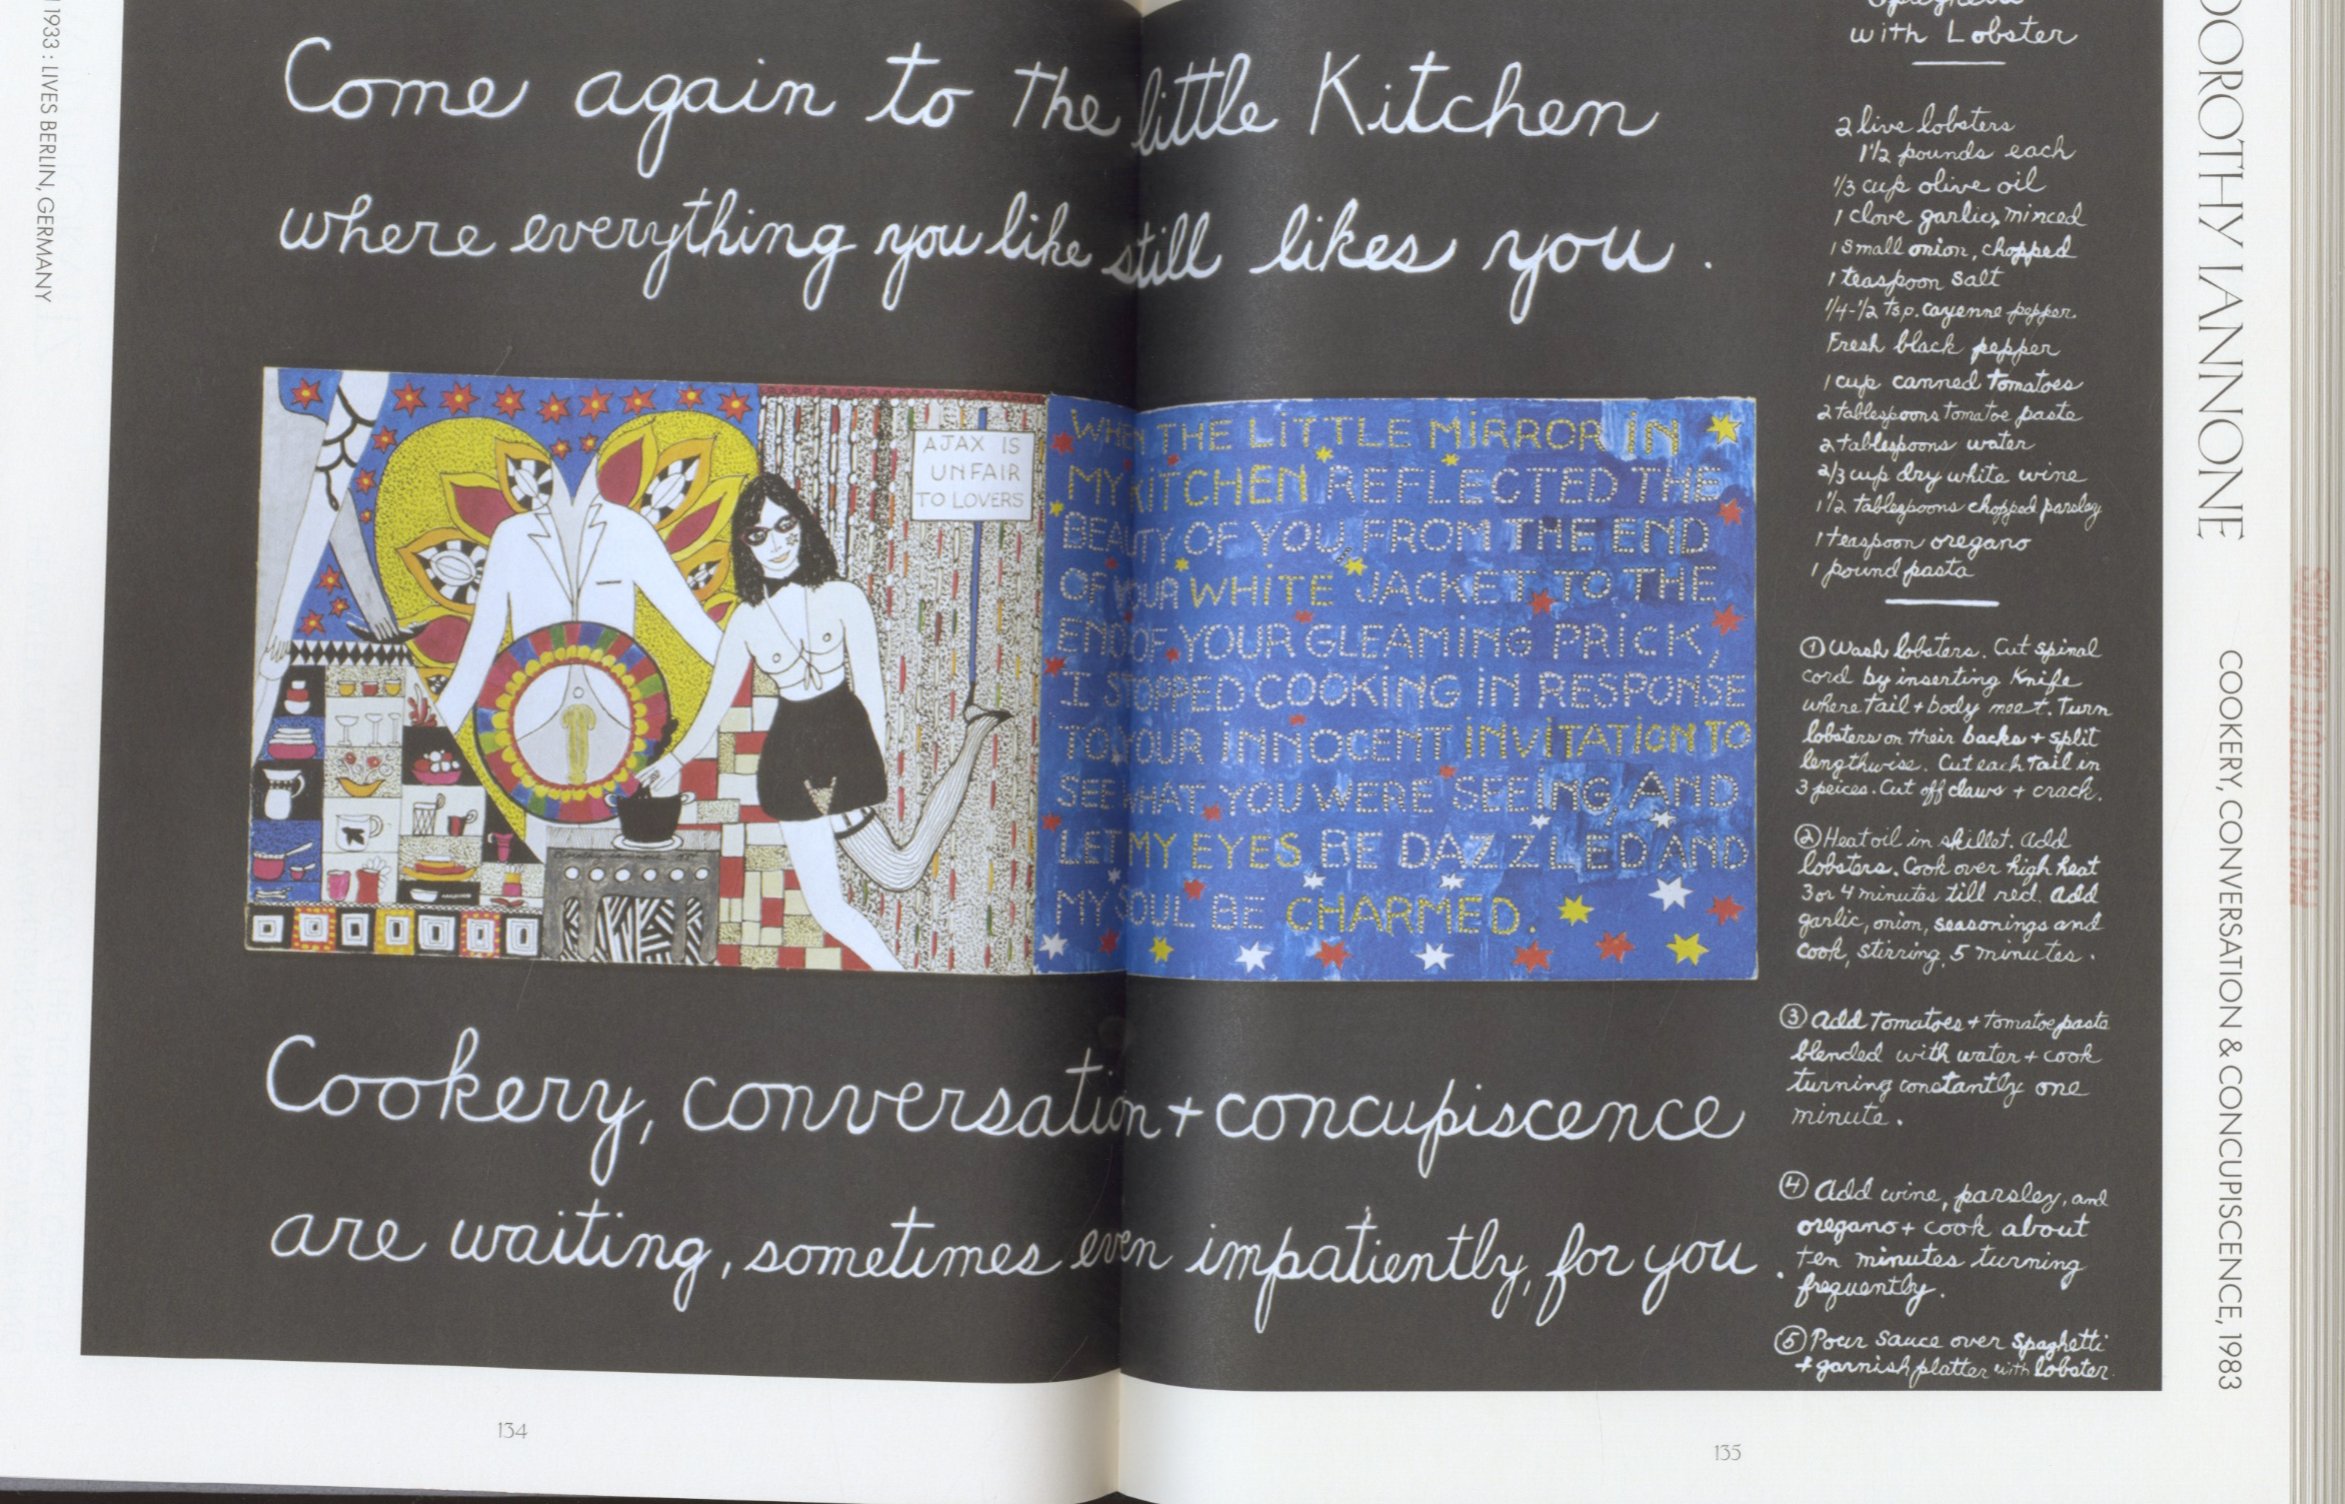 1933 : LIVES BERLIN, GERMANY
Come again to The little Kitchen
where everything you like still likes you .
AJAX IS
UNFAIR
TO LOVERS
WHEN THE LITTLE MIRROR IN
MY KITCHEN REFLECTED THE
BEAUTY OF YOU FROM THE END
OF YOUR WHITE JACKET TO THE
END OF YOUR GLEAMING PRICK,
I STOPPED COOKING IN RESPONSE
TO YOUR INNOCENT INVITATION TO
SEE WHAT YOU WERE SEEING, AND
LET MY EYES BE DAZZLED AND
MY SOUL BE CHARMED.
Cookery, conversation + concupiscence
are waiting, sometimes even impatiently, for you .
Spaghetti
with Lobster
2 live lobsters
1 1/2 pounds each
1/3 cup olive oil
1 clove garlic, minced
1 small onion, chopped
1 teaspoon salt
1/4-1/2 tsp. cayenne pepper
Fresh black pepper
1 cup canned tomatoes
2 tablespoons tomatoe paste
2 tablespoons water
2/3 cup dry white wine
1 1/2 tablespoons chopped parsley
1 teaspoon oregano
1 pound pasta
① Wash lobsters. Cut spinal
cord by inserting knife
where tail + body meet. Turn
lobsters on their backs + split
lengthwise. Cut each tail in
3 peices. Cut off claws + crack.
② Heat oil in skillet. Add
lobsters. Cook over high heat
3 or 4 minutes till red. Add
garlic, onion, seasonings and
cook, stirring, 5 minutes.
③ Add Tomatoes + tomatoe paste
blended with water + cook
turning constantly one
minute.
④ Add wine, parsley, and
oregano + cook about
ten minutes turning
frequently.
⑤ Pour sauce over spaghetti
+ garnish platter with lobster.
DOROTHY IANNONE
COOKERY, CONVERSATION & CONCUPISCENCE, 1983
134
135